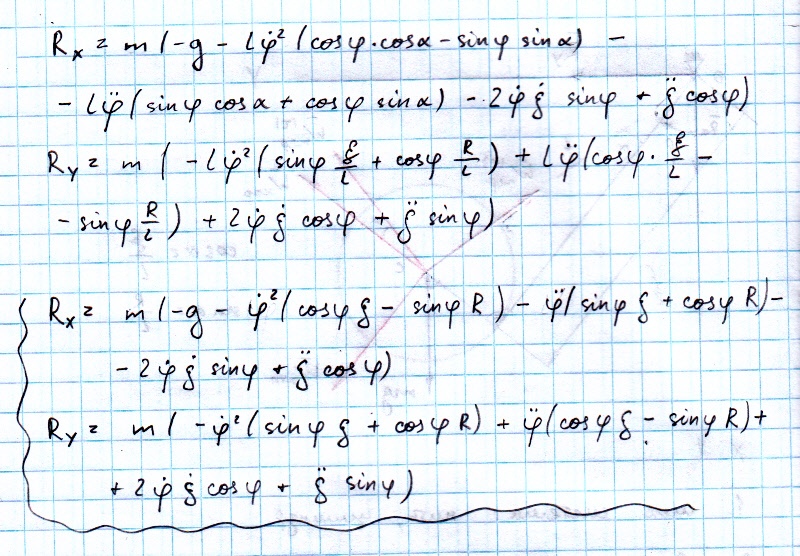 Rx = m (-g - Lφ̇² (cosφ·cosα - sinφ sinα) -
- Lφ̈ (sinφ cosα + cosφ sinα) - 2φ̇ ξ̇ sinφ + ξ̈ cosφ)
Ry = m ( -Lφ̇² (sinφ ξ/L + cosφ R/L) + Lφ̈ (cosφ · ξ/L -
- sinφ R/L) + 2φ̇ ξ̇ cosφ + ξ̈ sinφ)
Rx = m (-g - φ̇² (cosφ ξ - sinφ R) - φ̈ (sinφ ξ + cosφ R) -
- 2φ̇ ξ̇ sinφ + ξ̈ cosφ)
Ry = m ( -φ̇² (sinφ ξ + cosφ R) + φ̈ (cosφ ξ - sinφ R) +
+ 2φ̇ ξ̇ cosφ + ξ̈ sinφ)